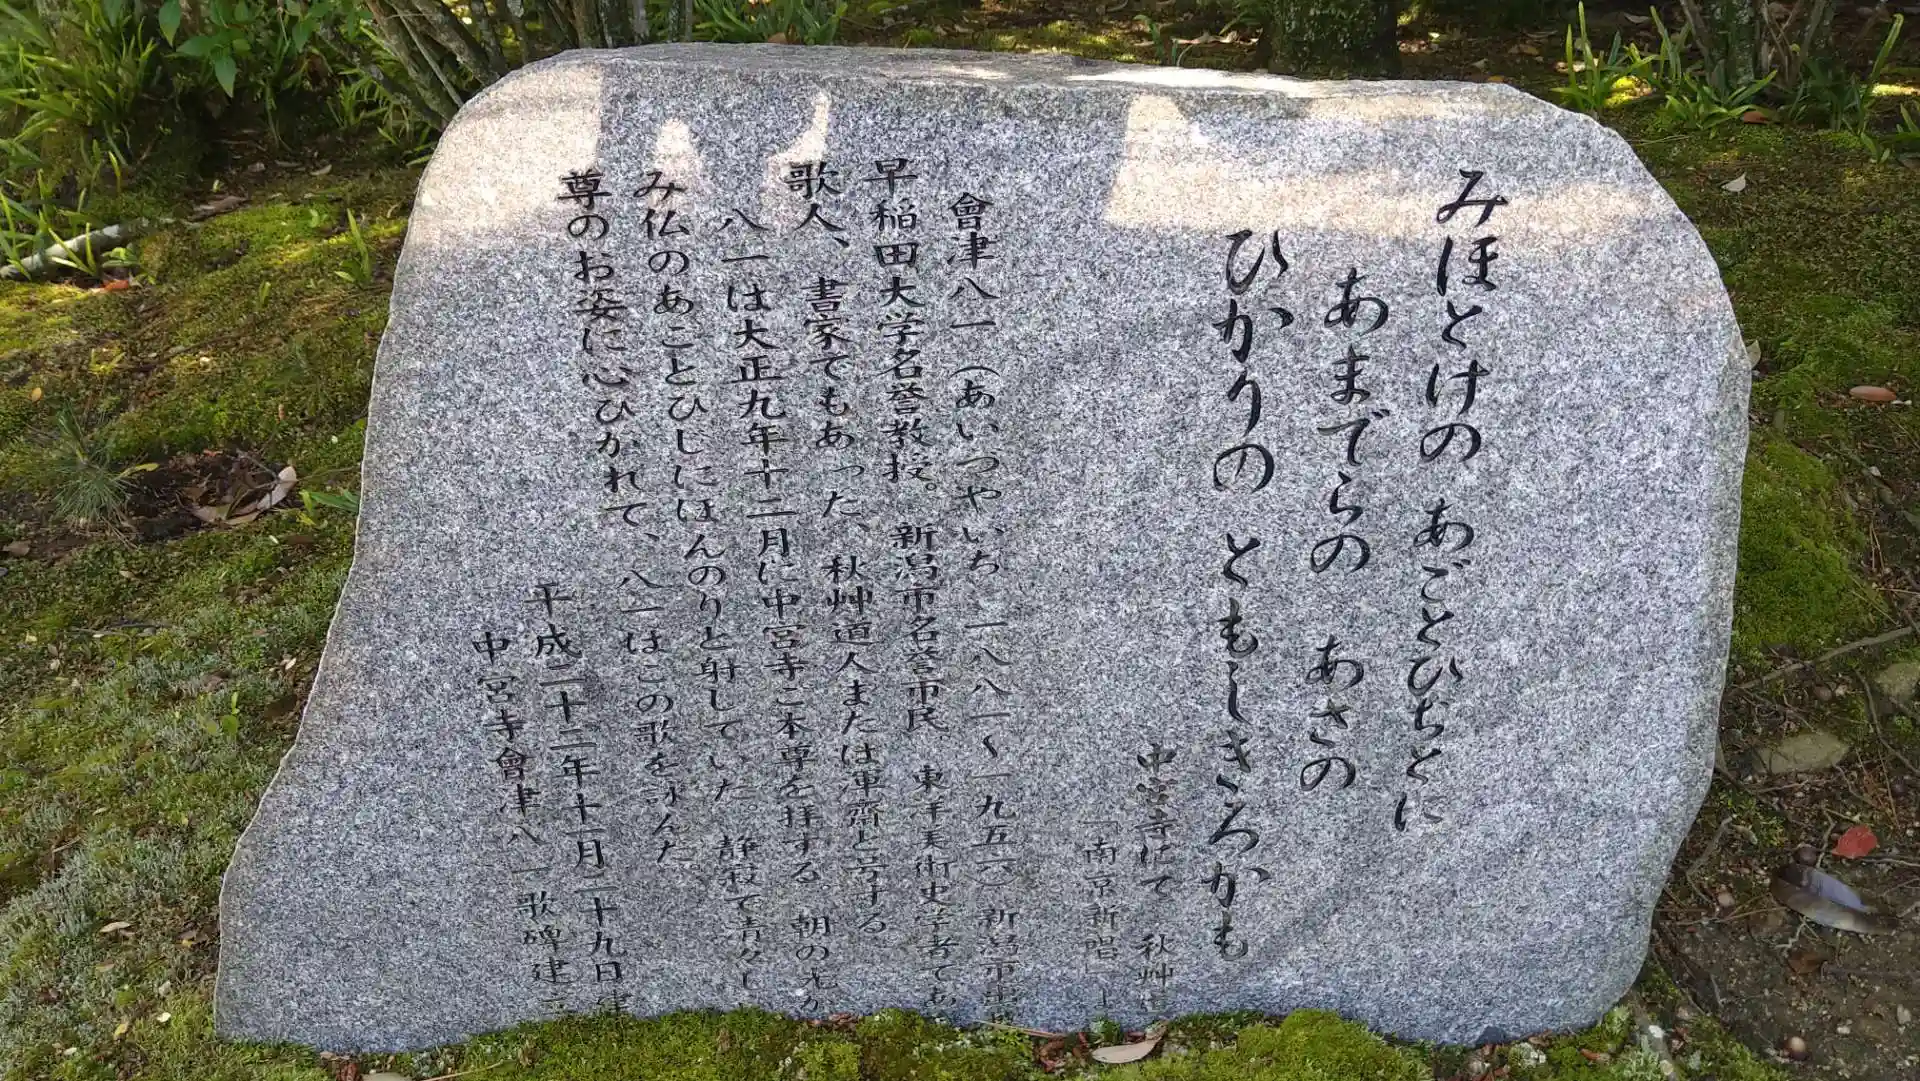 みほとけの あごとひぢとに
あまでらの あさの
ひかりの ともしきろかも
中宮寺にて 秋艸
「南京新唱」
會津八一(あいつやいち 一八八一〜一九五六)新潟市出
早稲田大学名誉教授。新潟市名誉市民 東洋美術史学者であ
歌人、書家でもあった、秋艸道人または渾齋と号する
八一は大正九年十二月に中宮寺ご本尊を拝する。朝の光が
み仏のあごとひじにほんのりと射していた 静寂で清々し
尊のお姿に心ひかれて、八一はこの歌を詠んだ、
平成二十二年十一月二十九日建
中宮寺會津八一歌碑建